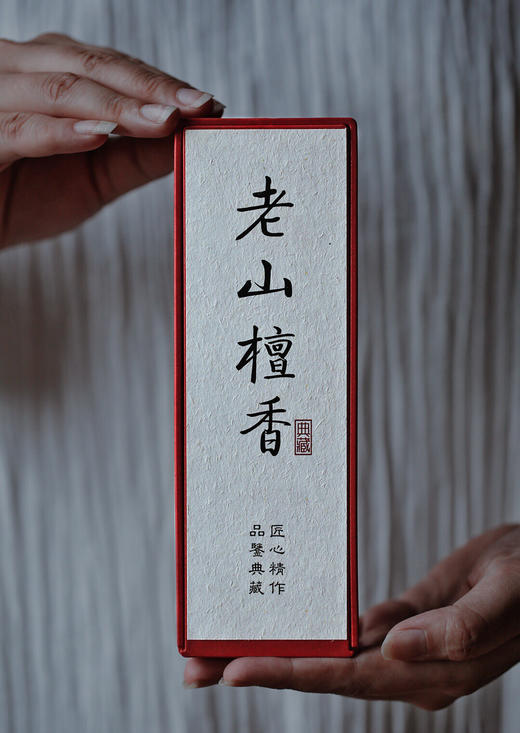 老山檀香
典藏
匠心精作
品鑒典藏